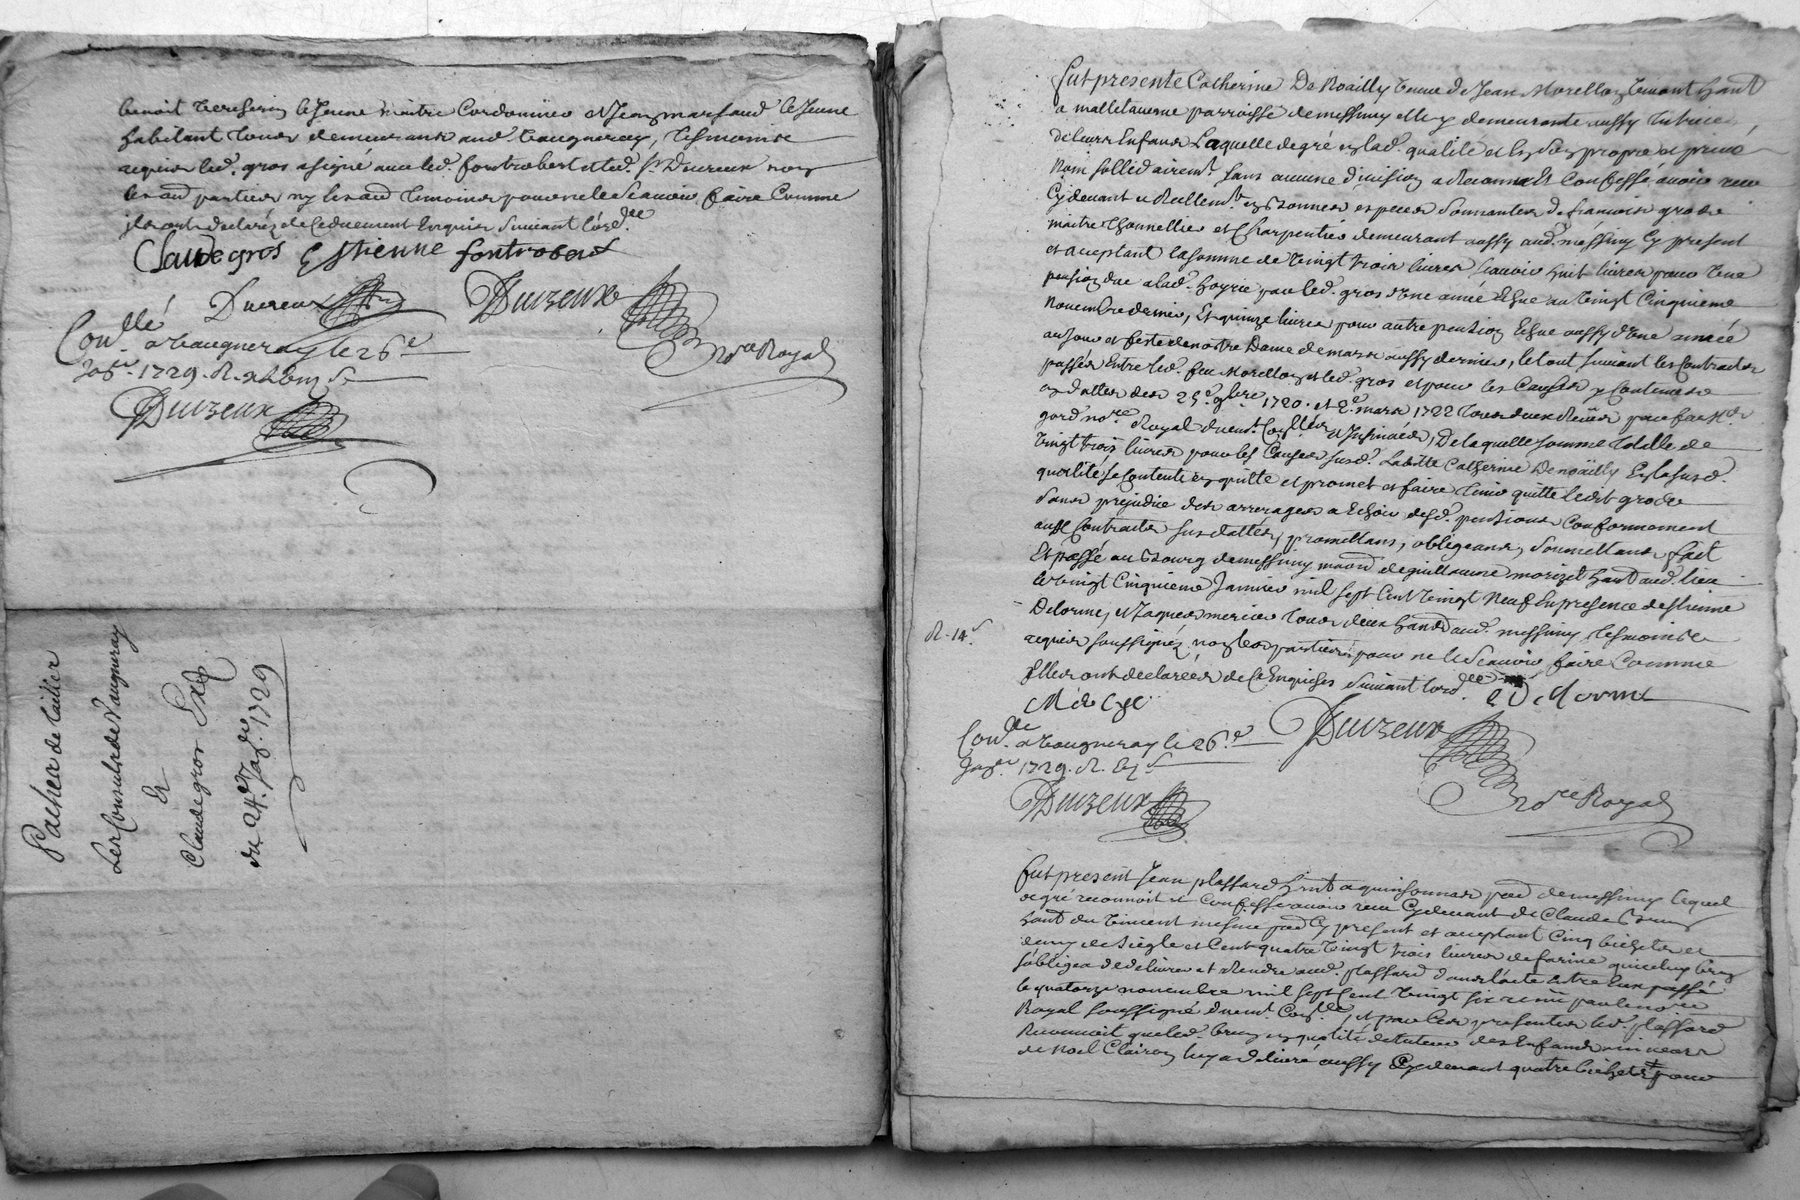 benoit terrserin le Jeune maitre Cordonnier et Jean marsaud le Jeune
habitant tous demeurans aud. Vaugneray, tesmoins
requis led. gros a signé avec led. fontrobert et led. Sr. Ducreux non
lesd. parties ny lesd. temoins pour ne le scavoir faire comme
ils ont declaréz de ce duement Enquis suivant l'ord.ce
Claude gros Estienne fontrobert
Ducreux Duvzeux
Con.llé a Vaugneray le 26e
Janv.er 1729. R.
Duvzeux
no.re Royal
Paches de tailles
Les Consuls de Vaugneray
Et
Claude gros
du 24e Janv.er 1729
Fut presente Catherine De Noailly veuve de Jean Morellon vivant habt
a malletaverne parroisse de messimy elle y demeurante aussy tutrice
de leurs Enfans Laquelle de gré en lad. qualité et en son propre et privé
Nom sollidairemt. sans aucune division a Reconnu et Confessé avoir receu
Cydevant et Reellemt. en bonnes especes sonnantes de francois gros
maitre thonnellier et Charpentier demeurant aussy aud. messimy Cy present
et acceptant la somme de vingt trois livres scavoir huit livres pour une
pension due a lad. par led. gros d'une année Echue au vingt Cinquieme
Novembre dernier, Et quinze livres pour autre pension Echue aussy d'une année
au jour et feste de notre Dame de mars aussy dernier, le tout suivant les Contracts
passés Entre led. feu Morellon et led. gros et pour les Causes y Contenues
en datte des 25e. 9bre 1720. et 2e. mars 1722 tous deux Reçus par
no.re Royal duemt. Con.llés et Insinués, De laquelle somme totalle de
vingt trois livres pour les Causes susd. Laditte Catherine De Noailly En la susd.
qualité se Contente en quitte et promet et faire tenir quitte ledit gros
sans prejudice des arrerages a Echoir desd. pensions Conformement
aux Contracts susdattés, promettans, obligeans, soumettans fait
Et passé au bourg de messimy maon. de guillaume morizet habt aud. lieu
le vingt Cinquieme Janvier mil sept Cent vingt Neuf En presence d'estienne
Delorme, et Jaques mercier tous deux habts aud. messimy tesmoins
R. 14s
requis soussignéz non les parties pour ne le scavoir faire Comme
Elles ont declarées de Ce Enquises suivant l'ord.ce
Con.llé a Vaugneray le 26.e
Janv.er 1729. R.
Duvzeux
Duvzeux
no.re Royal
Fut present Jean plassard habt a quinsonnas pard. de messimy lequel
de gré reconnoit et Confesse avoir receu Cydevant de Claude brun
habt. du mesme pard. Cy present et acceptant Cinq bichets et
demy de seigle et Cent quatre vingt trois livres de farine que led. brun
s'obligea de delivrer et rendre aud. plassard dans l'acte entre Eux passé
le quatorze novembre mil sept Cent vingt six receu par le no.re
Royal soussigné duemt Con.llé, et par ces presentes led. plassard
Reconnoit que led. brun en qualité de tuteur des Enfans mineurs
de Noel Clairon luy a delivré aussy Cydevant quatre bichets pour